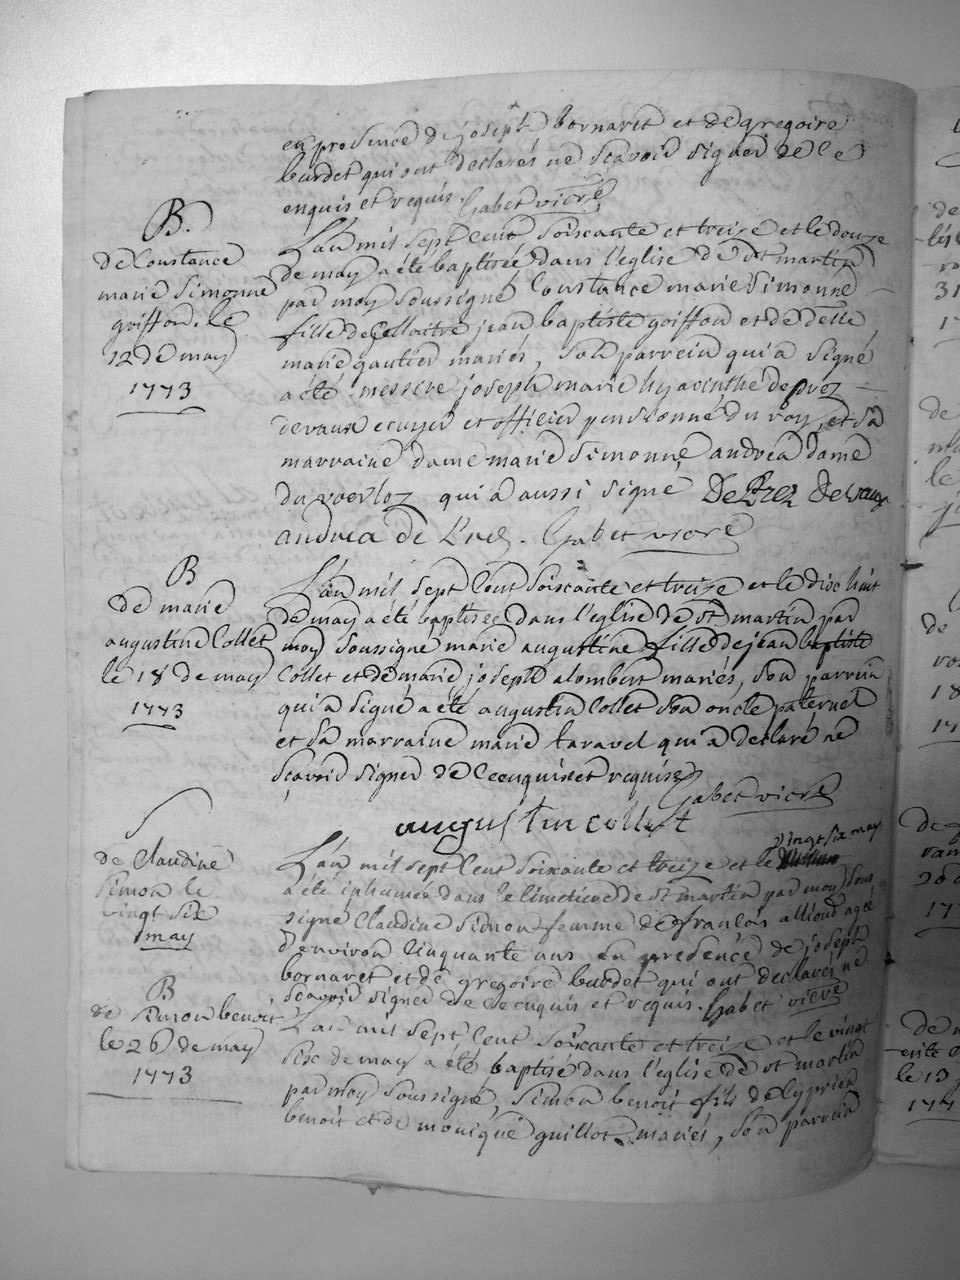 en presence de joseph bornaret et de gregoire
burdet qui ont declarés ne scavoir signer de ce
enquis et requis. Gabet vicre
B.
de Constance
marie Simonne
goiffon. le
12 de may
1773
L'an mil sept cent soixante et treize et le douze
de may a été baptisée dans l'eglise de st martin
par moy soussigné Constance marie Simonne
fille de jean baptiste goiffon et de delle
marie gautier mariés, son parrein qui a signé
a été messire joseph marie hyacinthe de prez
devaux ecuyer et officier pensionné du roy, et sa
marraine dame marie Simonne andréa dame
qui a aussi signé De Prez Devaux
andréa de Gabet vicre
B
de marie
augustine Collet
le 18 de may
1773
L'an mil sept cent soixante et treize et le dix huit
de may a été baptisée dans l'eglise de st martin par
moy soussigné marie augustine fille de jean baptiste
Collet et de marie joseph alombert mariés, son parrein
qui a signé a été augustin Collet son oncle paternel
et sa marraine marie taravel qui a declaré ne
scavoir signer de ce enquise et requise
Gabet vicre
augustin collet
de Claudine
Simon le
vingt six
may
vingt six may
L'an mil sept cent soixante et treize et le
a été inhumée dans le cimetiere de st martin par moy sous
signé Claudine Simon femme de francois alliout agée
d'environ cinquante ans en presence de joseph
bornaret et de gregoire burdet qui ont declarés ne
scavoir signer de ce enquis et requis. Gabet vicre
B
de Simon benoit
le 26 de may
1773
L'an mil sept cent soixante et treize et le vingt
six de may a été baptisé dans l'eglise de st martin
par moy soussigné, Simon benoit fils de Cyprien
benoit et de monique guillot mariés, son parrein